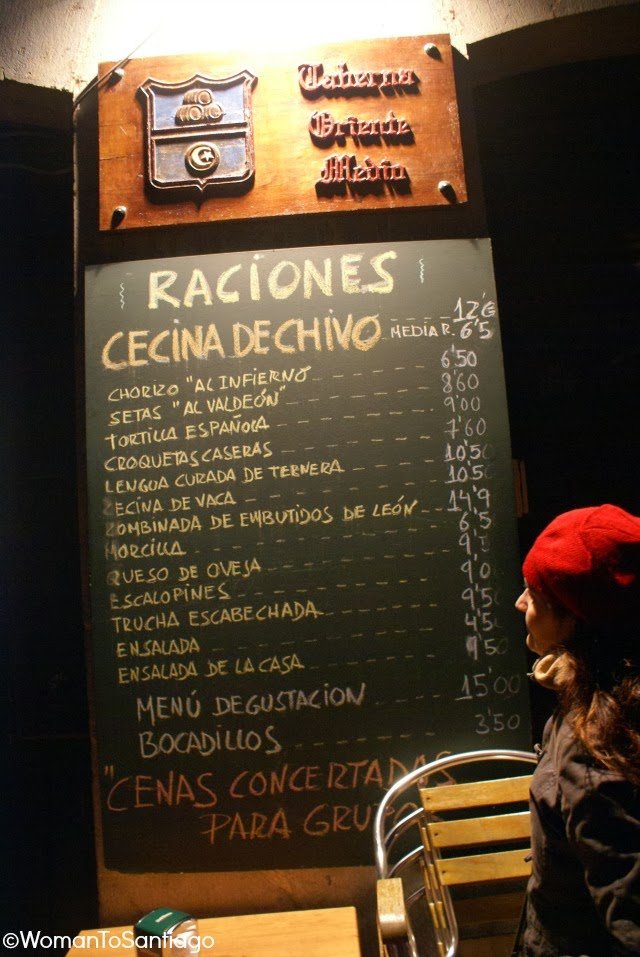 Taberna
Oriente
Medio
RACIONES
CECINA DE CHIVO ---- 12'€
MEDIA R. 6'5
CHORIZO "AL INFIERNO 6'50
SETAS "AL VALDEÓN" 8'60
TORTILLA ESPAÑOLA 9'00
CROQUETAS CASERAS 7'60
LENGUA CURADA DE TERNERA 10'50
CECINA DE VACA 10'5
COMBINADA DE EMBUTIDOS DE LEÓN 14'9
MORCILLA 6'5
QUESO DE OVEJA
ESCALOPINES 9'0
TRUCHA ESCABECHADA 9'50
ENSALADA 4'50
ENSALADA DE LA CASA
MENÚ DEGUSTACION 15'00
BOCADILLOS 3'50
"CENAS CONCERTADAS
PARA GRUPOS
©WomanToSantiago